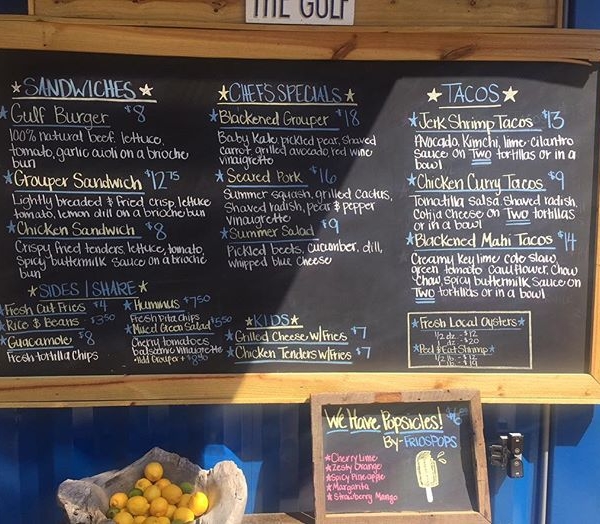 THE GULF
★ SANDWICHES ★
★ Gulf Burger $8
100% natural beef, lettuce,
tomato, garlic aioli on a brioche
bun
★ Grouper Sandwich $12.75
Lightly breaded & fried crisp, lettuce
tomato, lemon dill on a brioche bun
★ Chicken Sandwich $8
Crispy fried tenders, lettuce, tomato,
Spicy buttermilk sauce on a brioche
bun
SIDES / SHARE ★
★ Fresh Cut Fries $4
★ Rice & Beans $3.50
★ Guacamole $8
Fresh tortilla Chips
★ Hummus $7.50
Fresh Pita Chips
★ Mixed Green Salad $5.50
Cherry tomatoes
balsamic vinaigrette
★ CHEF'S SPECIALS ★
★ Blackened Grouper $18
Baby Kale, pickled pear, shaved
Carrot grilled avocado red wine
vinaigrette
★ Seared Pork $16
Summer squash, grilled cactus,
Shaved radish, pear & pepper
vinaigrette
★ Summer Salad $9
Pickled beets, cucumber, dill,
whipped blue cheese
★ KIDS ★
★ Grilled Cheese w/ Fries $7
★ Chicken Tenders w/ Fries $7
★ TACOS ★
★ Jerk Shrimp Tacos $13
Avocado, Kimchi, lime-cilantro
Sauce on Two tortillas or in a
bowl
★ Chicken Curry Tacos $9
Tomatilla Salsa, Shaved radish,
Cotija Cheese on Two tortillas
or in a bowl
★ Blackened Mahi Tacos $14
Creamy key lime cole slaw,
green tomato cauliflower, Chow
Chow, spicy buttermilk sauce on
Two tortillas or in a bowl
★ Fresh Local Oysters ★
1/2 dz - $12
1 dz - $20
★ Peel & Eat Shrimp ★
1/2 lb - $12
1 lb - $19
We Have Popsicles!
By - FRIOSPOPS
★ Cherry Lime
★ Zesty Orange
★ Spicy Pineapple
★ Margarita
★ Strawberry Mango